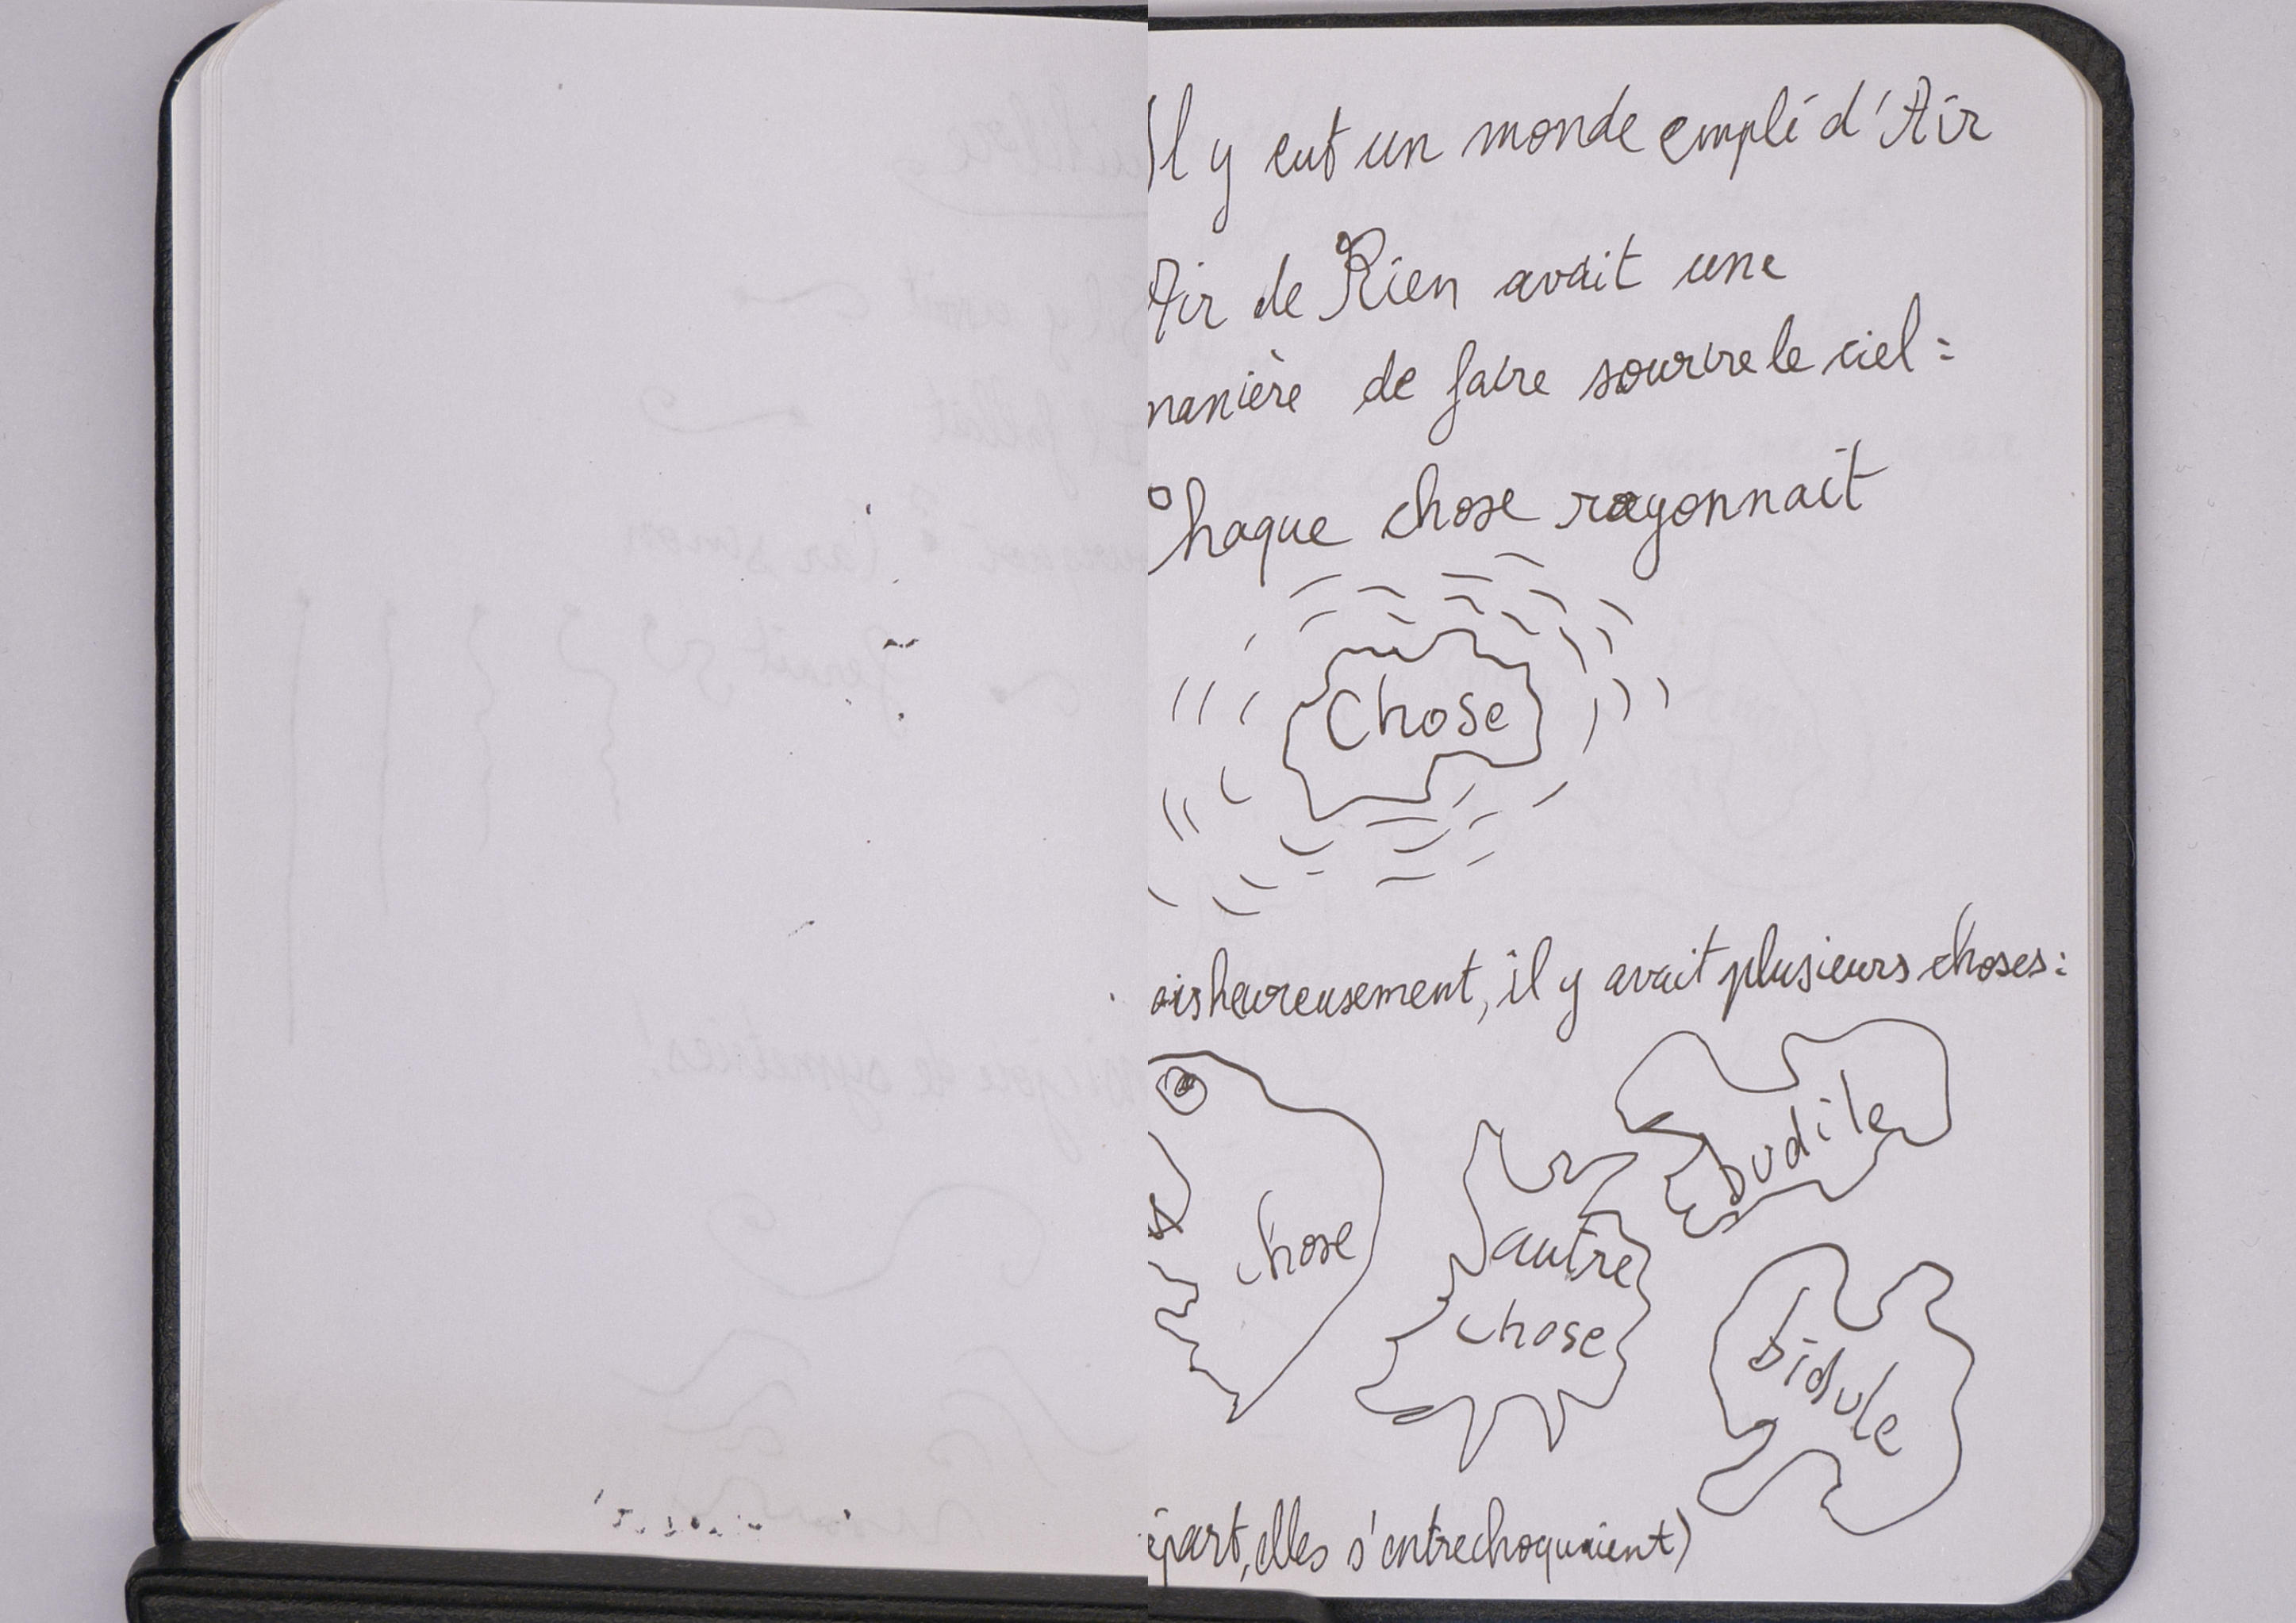 Il y eut un monde empli d'Air
Air de Rien avait une
manière de faire sourire le ciel :
Chaque chose rayonnait
Chose
ais heureusement, il y avait plusieurs choses :
budile
chose
autre
chose
bidule
épart, elles s'entrechoquaient)